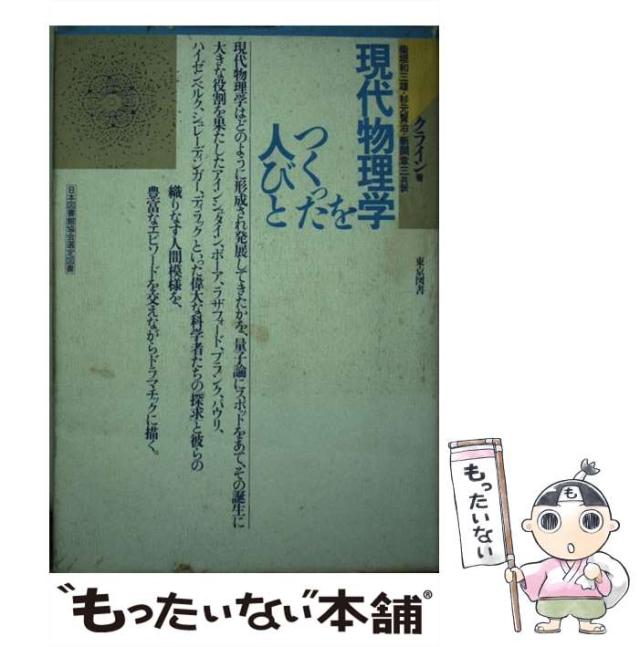 クライン著
柴垣和三雄・杉元賢治・新関章三共訳
現代物理学
を
つくった
人びと
東京図書
現代物理学はどのように形成され発展してきたかを、量子論にスポットをあて、その誕生に
大きな役割を果たしたアインシュタイン、ボーア、ラザフォード、プランク、パウリ、
ハイゼンベルク、シュレーディンガー、ディラックといった偉大な科学者たちの探求と彼らの
織りなす人間模様を、
豊富なエピソードを交えながらドラマチックに描く。
日本図書館協会選定図書
もったいない
も
“もったいない本舗”®